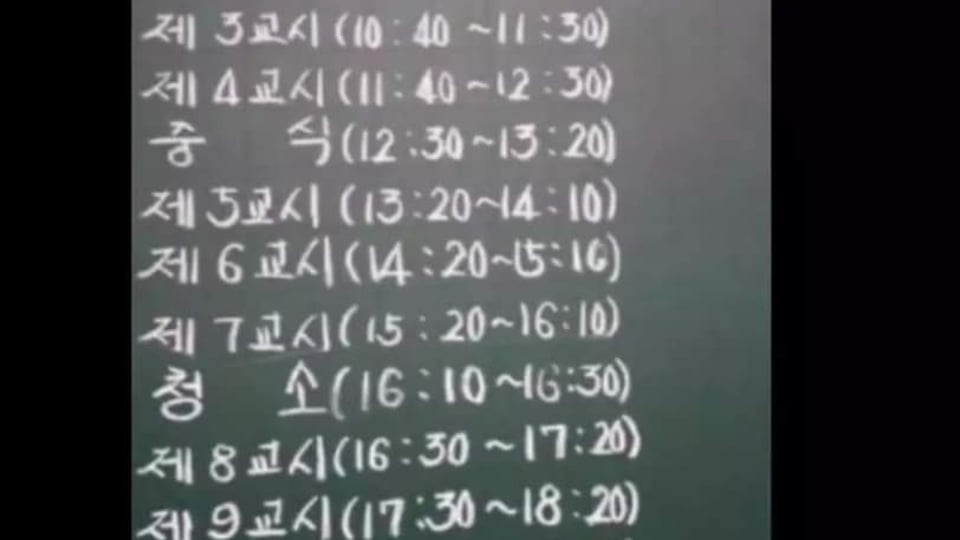 제 3교시 (10:40 ~11:30)
제 4교시 (11:40~12:30)
중 식 (12:30~13:20)
제 5교시 (13:20~14:10)
제 6교시 (14:20~15:10)
제 7교시 (15:20~16:10)
청 소 (16:10~16:30)
제 8교시 (16:30 ~17:20)
제 9교시 (17:30~18:20)